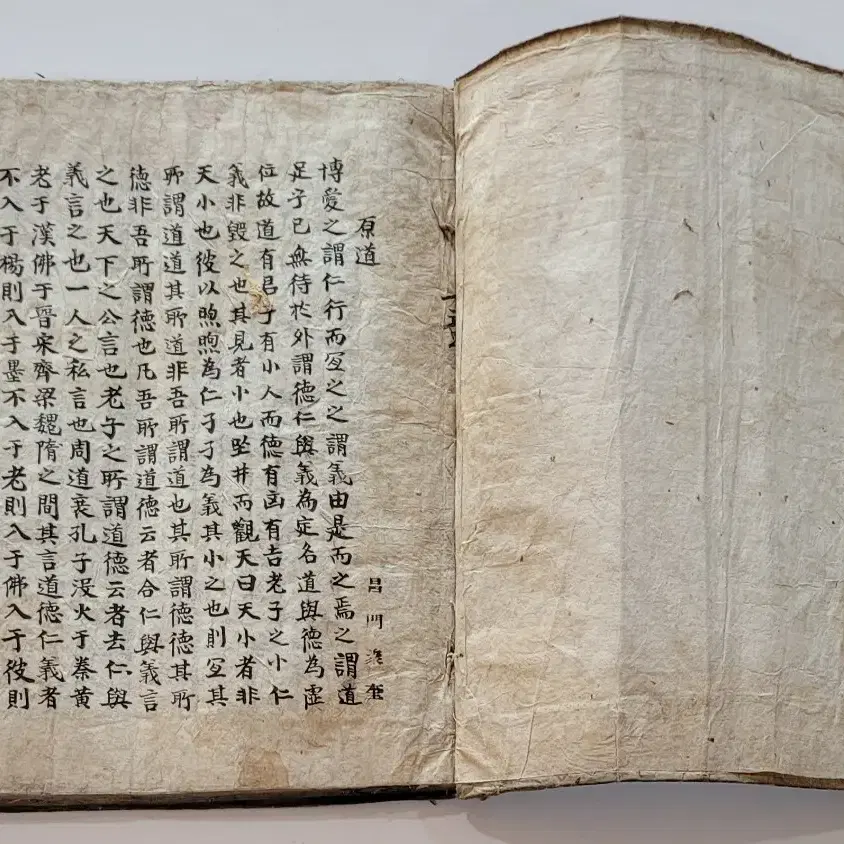 原道
博愛之謂仁行而冝之之謂義由是而之焉之謂道
足乎已無待於外謂德仁與義為定名道與德為虛
位故道有君子有小人而德有凶有吉老子之小仁
義非毀之也其見者小也坐井而觀天曰天小者非
天小也彼以煦煦為仁孑孑為義其小之也則冝其
所謂道道其所道非吾所謂道也其所謂德德其所
德非吾所謂德也凡吾所謂道德云者合仁與義言
之也天下之公言也老子之所謂道德云者去仁與
義言之也一人之私言也周道衰孔子沒火于秦黃
老于漢佛于晉宋齊梁魏隋之間其言道德仁義者
不入于楊則入于墨不入于老則入于佛入于彼則